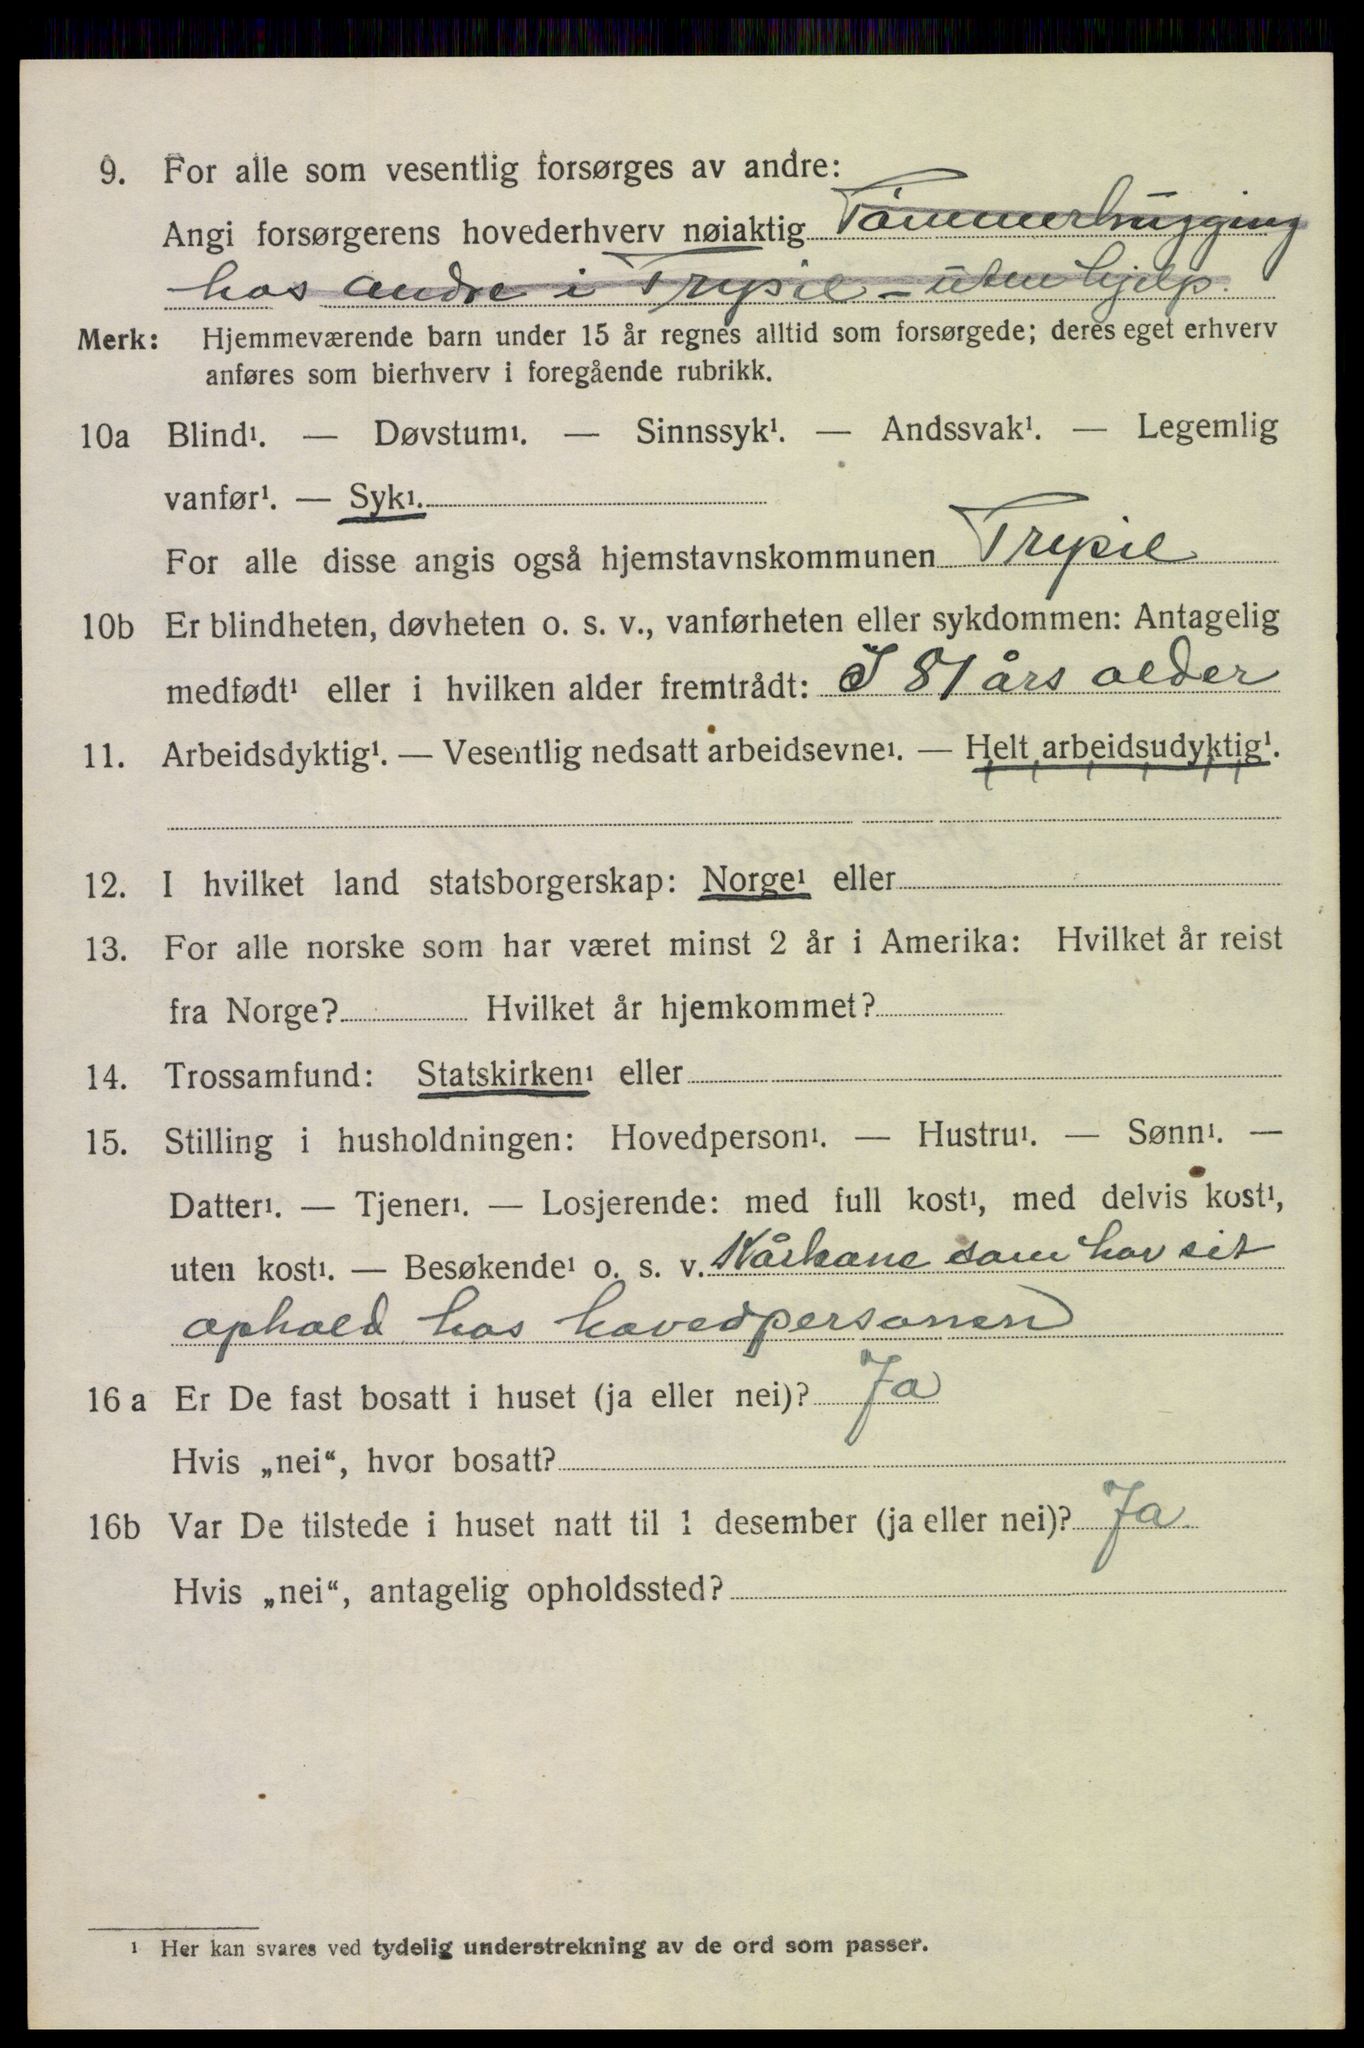 9. For alle som vesentlig forsørges av andre:
Angi forsørgerens hovederhverv nøiaktig Tømmerhugging
hos andre i Trysil - uten hjelp.
Merk: Hjemmeværende barn under 15 år regnes alltid som forsørgede; deres eget erhverv
anføres som bierhverv i foregående rubrikk.
10a Blind¹. — Døvstum¹. — Sinnssyk¹. — Andssvak¹. — Legemlig
vanfør¹. — Syk¹.
For alle disse angis også hjemstavnskommunen Trysil
10b Er blindheten, døvheten o. s. v., vanførheten eller sykdommen: Antagelig
medfødt¹ eller i hvilken alder fremtrådt: I 81 års alder
11. Arbeidsdyktig¹. — Vesentlig nedsatt arbeidsevne¹. — Helt arbeidsudyktig¹.
12. I hvilket land statsborgerskap: Norge¹ eller
13. For alle norske som har været minst 2 år i Amerika: Hvilket år reist
fra Norge? Hvilket år hjemkommet?
14. Trossamfund: Statskirken¹ eller
15. Stilling i husholdningen: Hovedperson¹. — Hustru¹. — Sønn¹. —
Datter¹. — Tjener¹. — Losjerende: med full kost¹, med delvis kost¹,
uten kost¹. — Besøkende¹ o. s. v. Kårkone som har sit
ophold hos hovedpersonen
16 a Er De fast bosatt i huset (ja eller nei)? Ja
Hvis „nei“, hvor bosatt?
16b Var De tilstede i huset natt til 1 desember (ja eller nei)? Ja
Hvis „nei“, antagelig opholdssted?
¹ Her kan svares ved tydelig understrekning av de ord som passer.